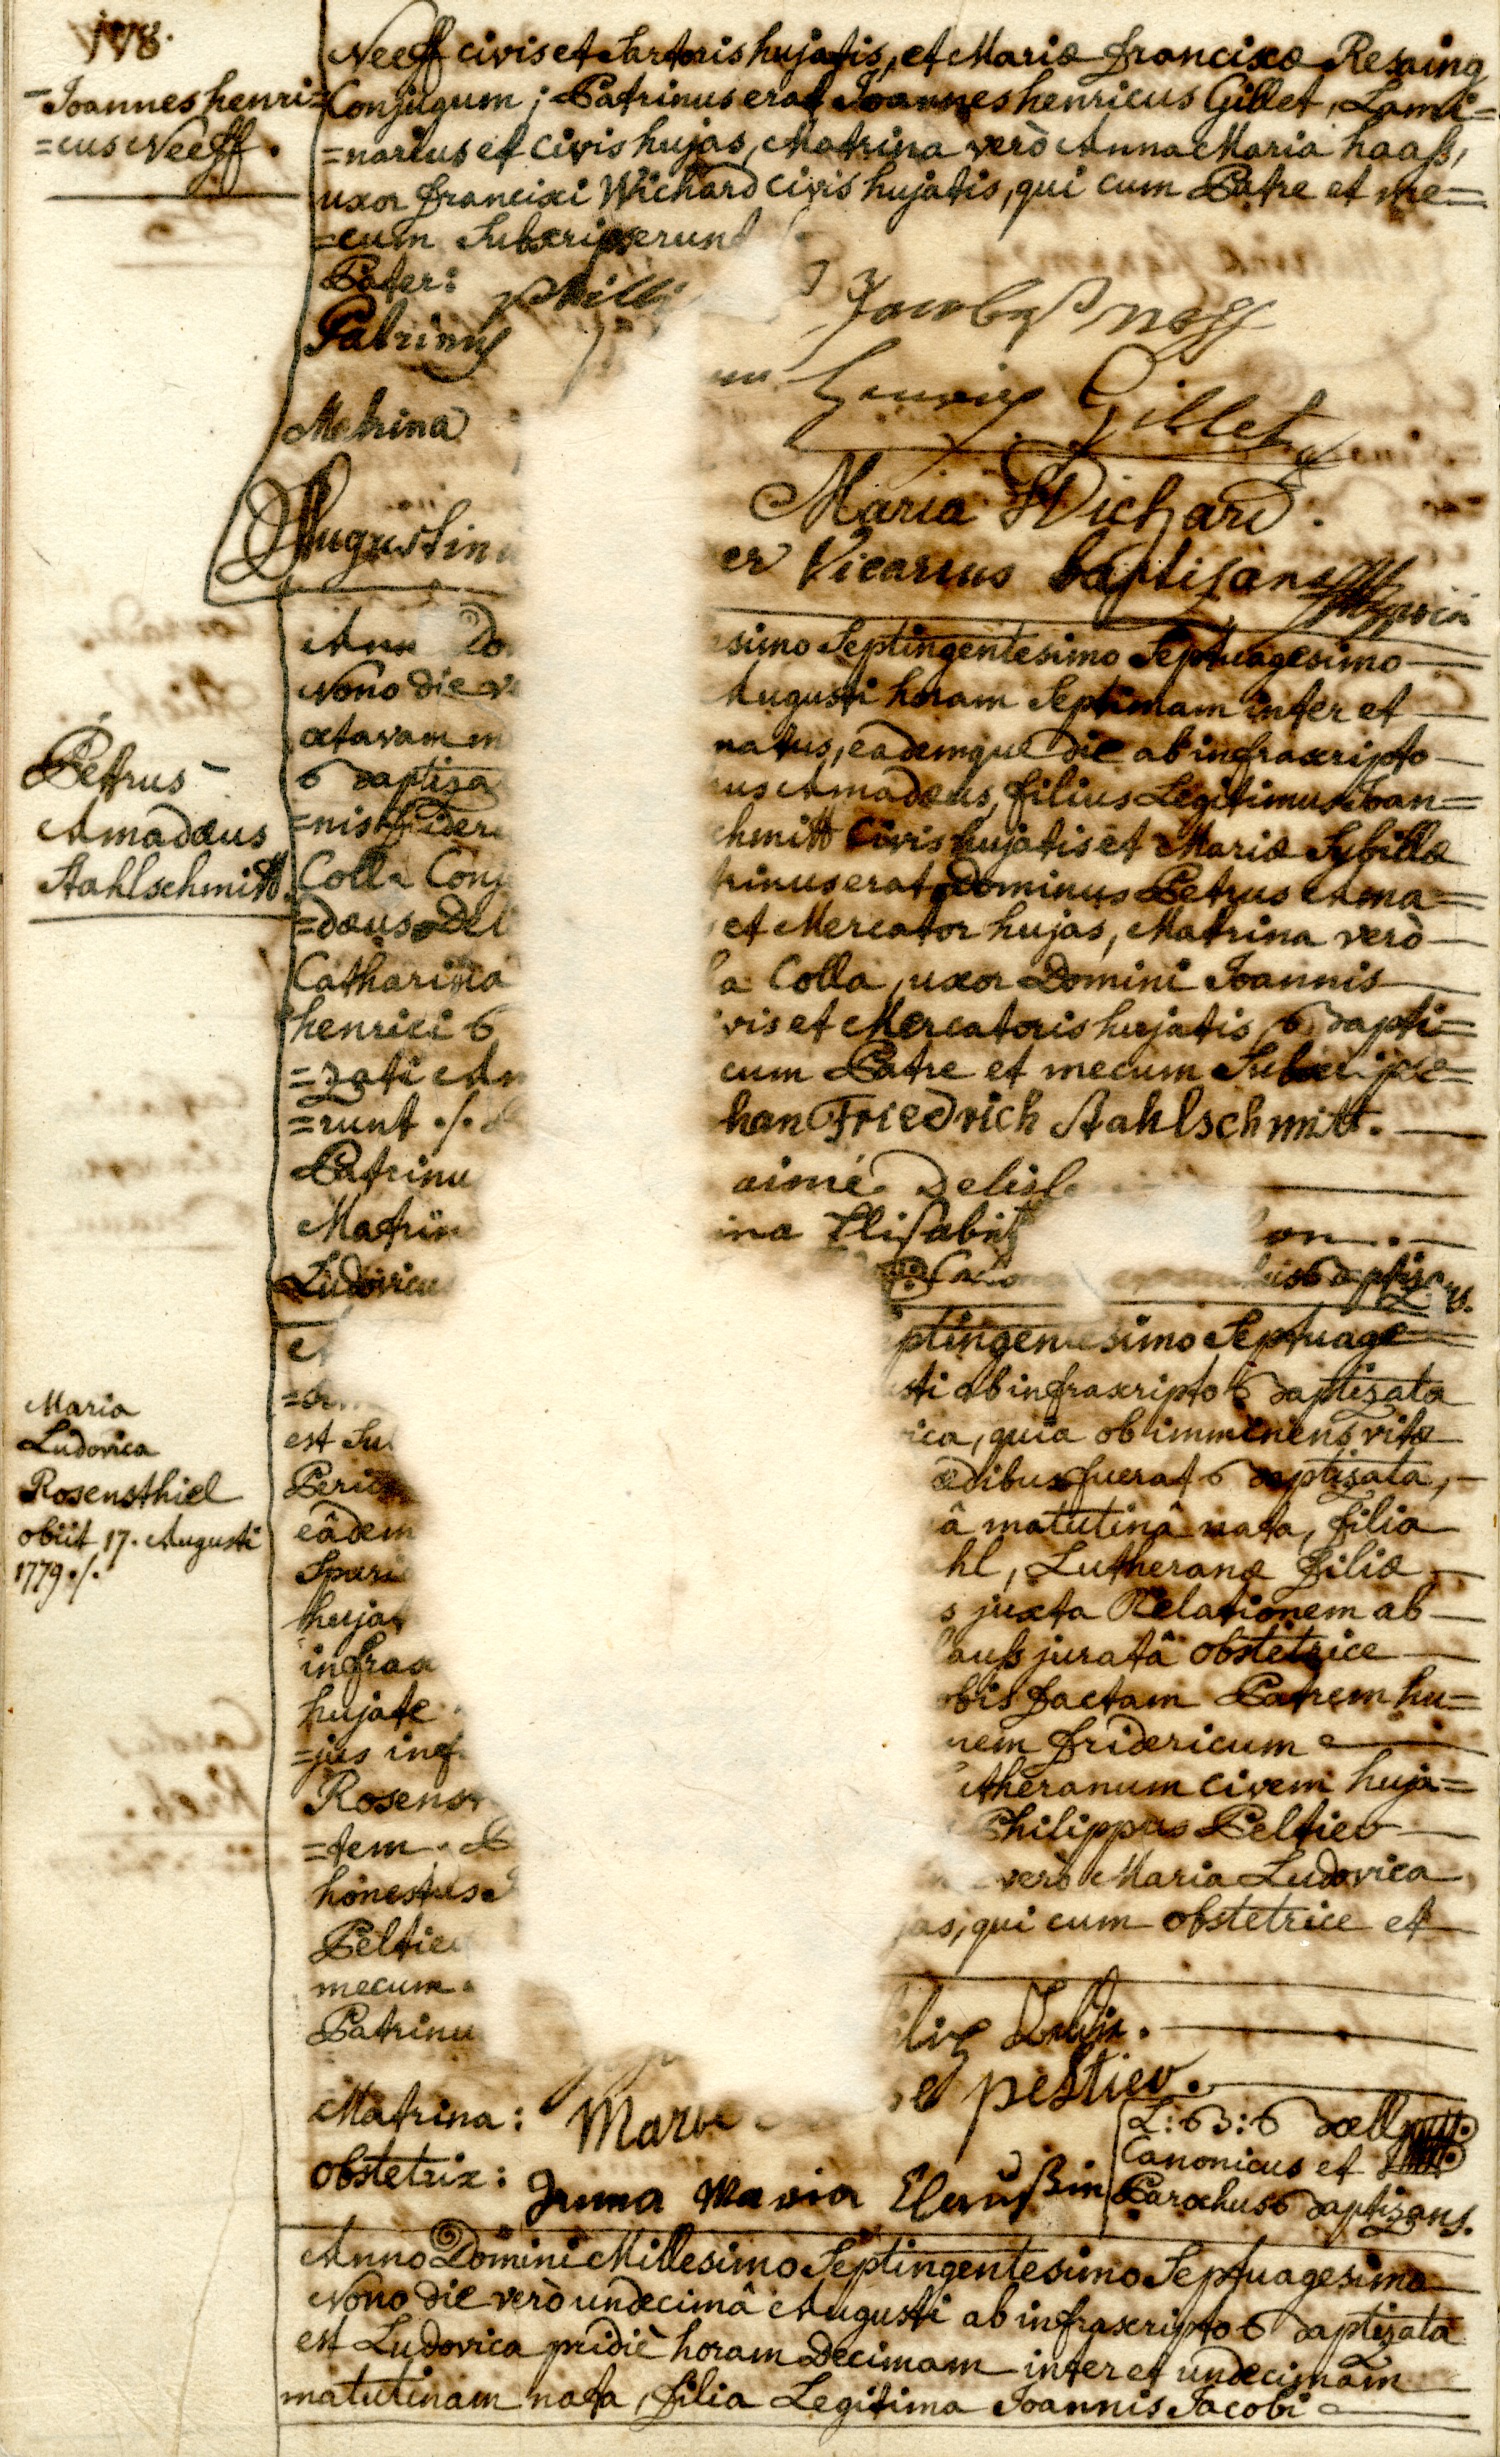 178.
Joannes henri=
=cus Neeff.
Neeff civis et Sartoris hujatis, et Mariæ Franciscæ Resaing
Conjugum; Patrinus erat Joannes henricus Gillet, Lami=
=narius et Civis hujas, Matrina verò Anna Maria haaß,
uxor Francisci Wichard civis hujatis, qui cum Patre et me=
=cum Subscripserunt
Pater: Philli Jacobus neff
Patrinus Henrich Gillet
Matrina Maria Wichard.
Augustinu er Vicarius baptizans
Petrus-
Amadæus
Stahlschmitt.
Ann Do simo Septingentesimo Septuagesimo
Nono die v Augusti horam Septimam inter et
octavam m natus, eademque die ab infrascripto
Baptiza us Amadæus, filius Legitimus Joan=
=nis frideri chmitt Civis hujatis et Mariæ Sybillæ
Colla Conj trinus erat Dominus Petrus Ama=
=dæus Del et Mercator hujas, Matrina verò
Catharina a Colla, uxor Domini Joannis
henrici B vis et Mercatoris hujatis, Bapti=
=zati Am cum Patre et mecum Subscripse=
=runt ./. han Friedrich Stahlschmitt.
Patrinu aimé Delisl
Matrin ina Elisabet on.
Ludovicus Baptizans.
Maria
Ludovica
Rosensthiel
obiit 17. Augusti
1779 ./.
A ptingentesimo Septuage=
sti ab infrascripto Baptizata
est Su ica, quia ob imminens vitæ
Peric ædibus fuerat Baptizata,
eâdem â matutinâ nata, filia
Spuri hl, Lutheranæ filiæ
hujat s juxta Relationem ab
infrasc auß juratâ obstetrice
hujate obis factam Patrem hu=
=jus inf nem fridericum
Rosenst utheranum civem huja=
=tem. P Philippus Peltier
honestus verò Maria Ludovica
Peltier jas, qui cum obstetrice et
mecum
Patrinu
Matrina: Marie e peltier.
obstetrix: Anna Maria Claußin
L: B: Bæll
Canonicus et
Parochus Baptizans.
Anno Domini Millesimo Septingentesimo Septuagesimo
Nono die verò undecimâ Augusti ab infrascripto Baptizata
est Ludovica pridiè horam Decimam inter et undecimam
matutinam nata, filia Legitima Joannis Jacobi